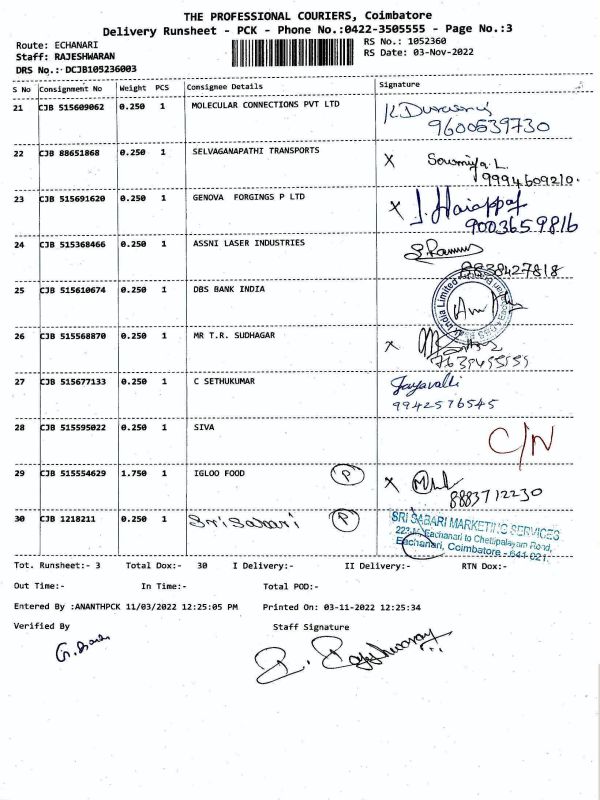 THE PROFESSIONAL COURIERS, Coimbatore
Delivery Runsheet - PCK - Phone No.:0422-3505555 - Page No.:3
Route: ECHANARI
RS No.: 1052360
Staff: RAJESHWARAN
RS Date: 03-Nov-2022
DRS No.: DCJB105236003
S No Consignment No Weight PCS Consignee Details Signature
21 CJB 515609062 0.250 1 MOLECULAR CONNECTIONS PVT LTD
9600539730
22 CJB 88651868 0.250 1 SELVAGANAPATHI TRANSPORTS X Sowmiya. L.
9994609210.
23 CJB 515691620 0.250 1 GENOVA FORGINGS P LTD X
9003659816
24 CJB 515368466 0.250 1 ASSNI LASER INDUSTRIES
8838427818
25 CJB 515610674 0.250 1 DBS BANK INDIA India Limited
26 CJB 515568870 0.250 1 MR T.R. SUDHAGAR X
27 CJB 515677133 0.250 1 C SETHUKUMAR Jayavalli
9942576545
28 CJB 515595022 0.250 1 SIVA C/N
29 CJB 515554629 1.750 1 IGLOO FOOD P X
8883712230
30 CJB 1218211 0.250 1 Sri Sabari P SRI SABARI MARKETING SERVICES
Eachanari to Chettipalayam Road,
Eachanari, Coimbatore - 641 021.
Tot. Runsheet:- 3 Total Dox:- 30 I Delivery:- II Delivery:- RTN Dox:-
Out Time:- In Time:- Total POD:-
Entered By :ANANTHPCK 11/03/2022 12:25:05 PM Printed On: 03-11-2022 12:25:34
Verified By Staff Signature